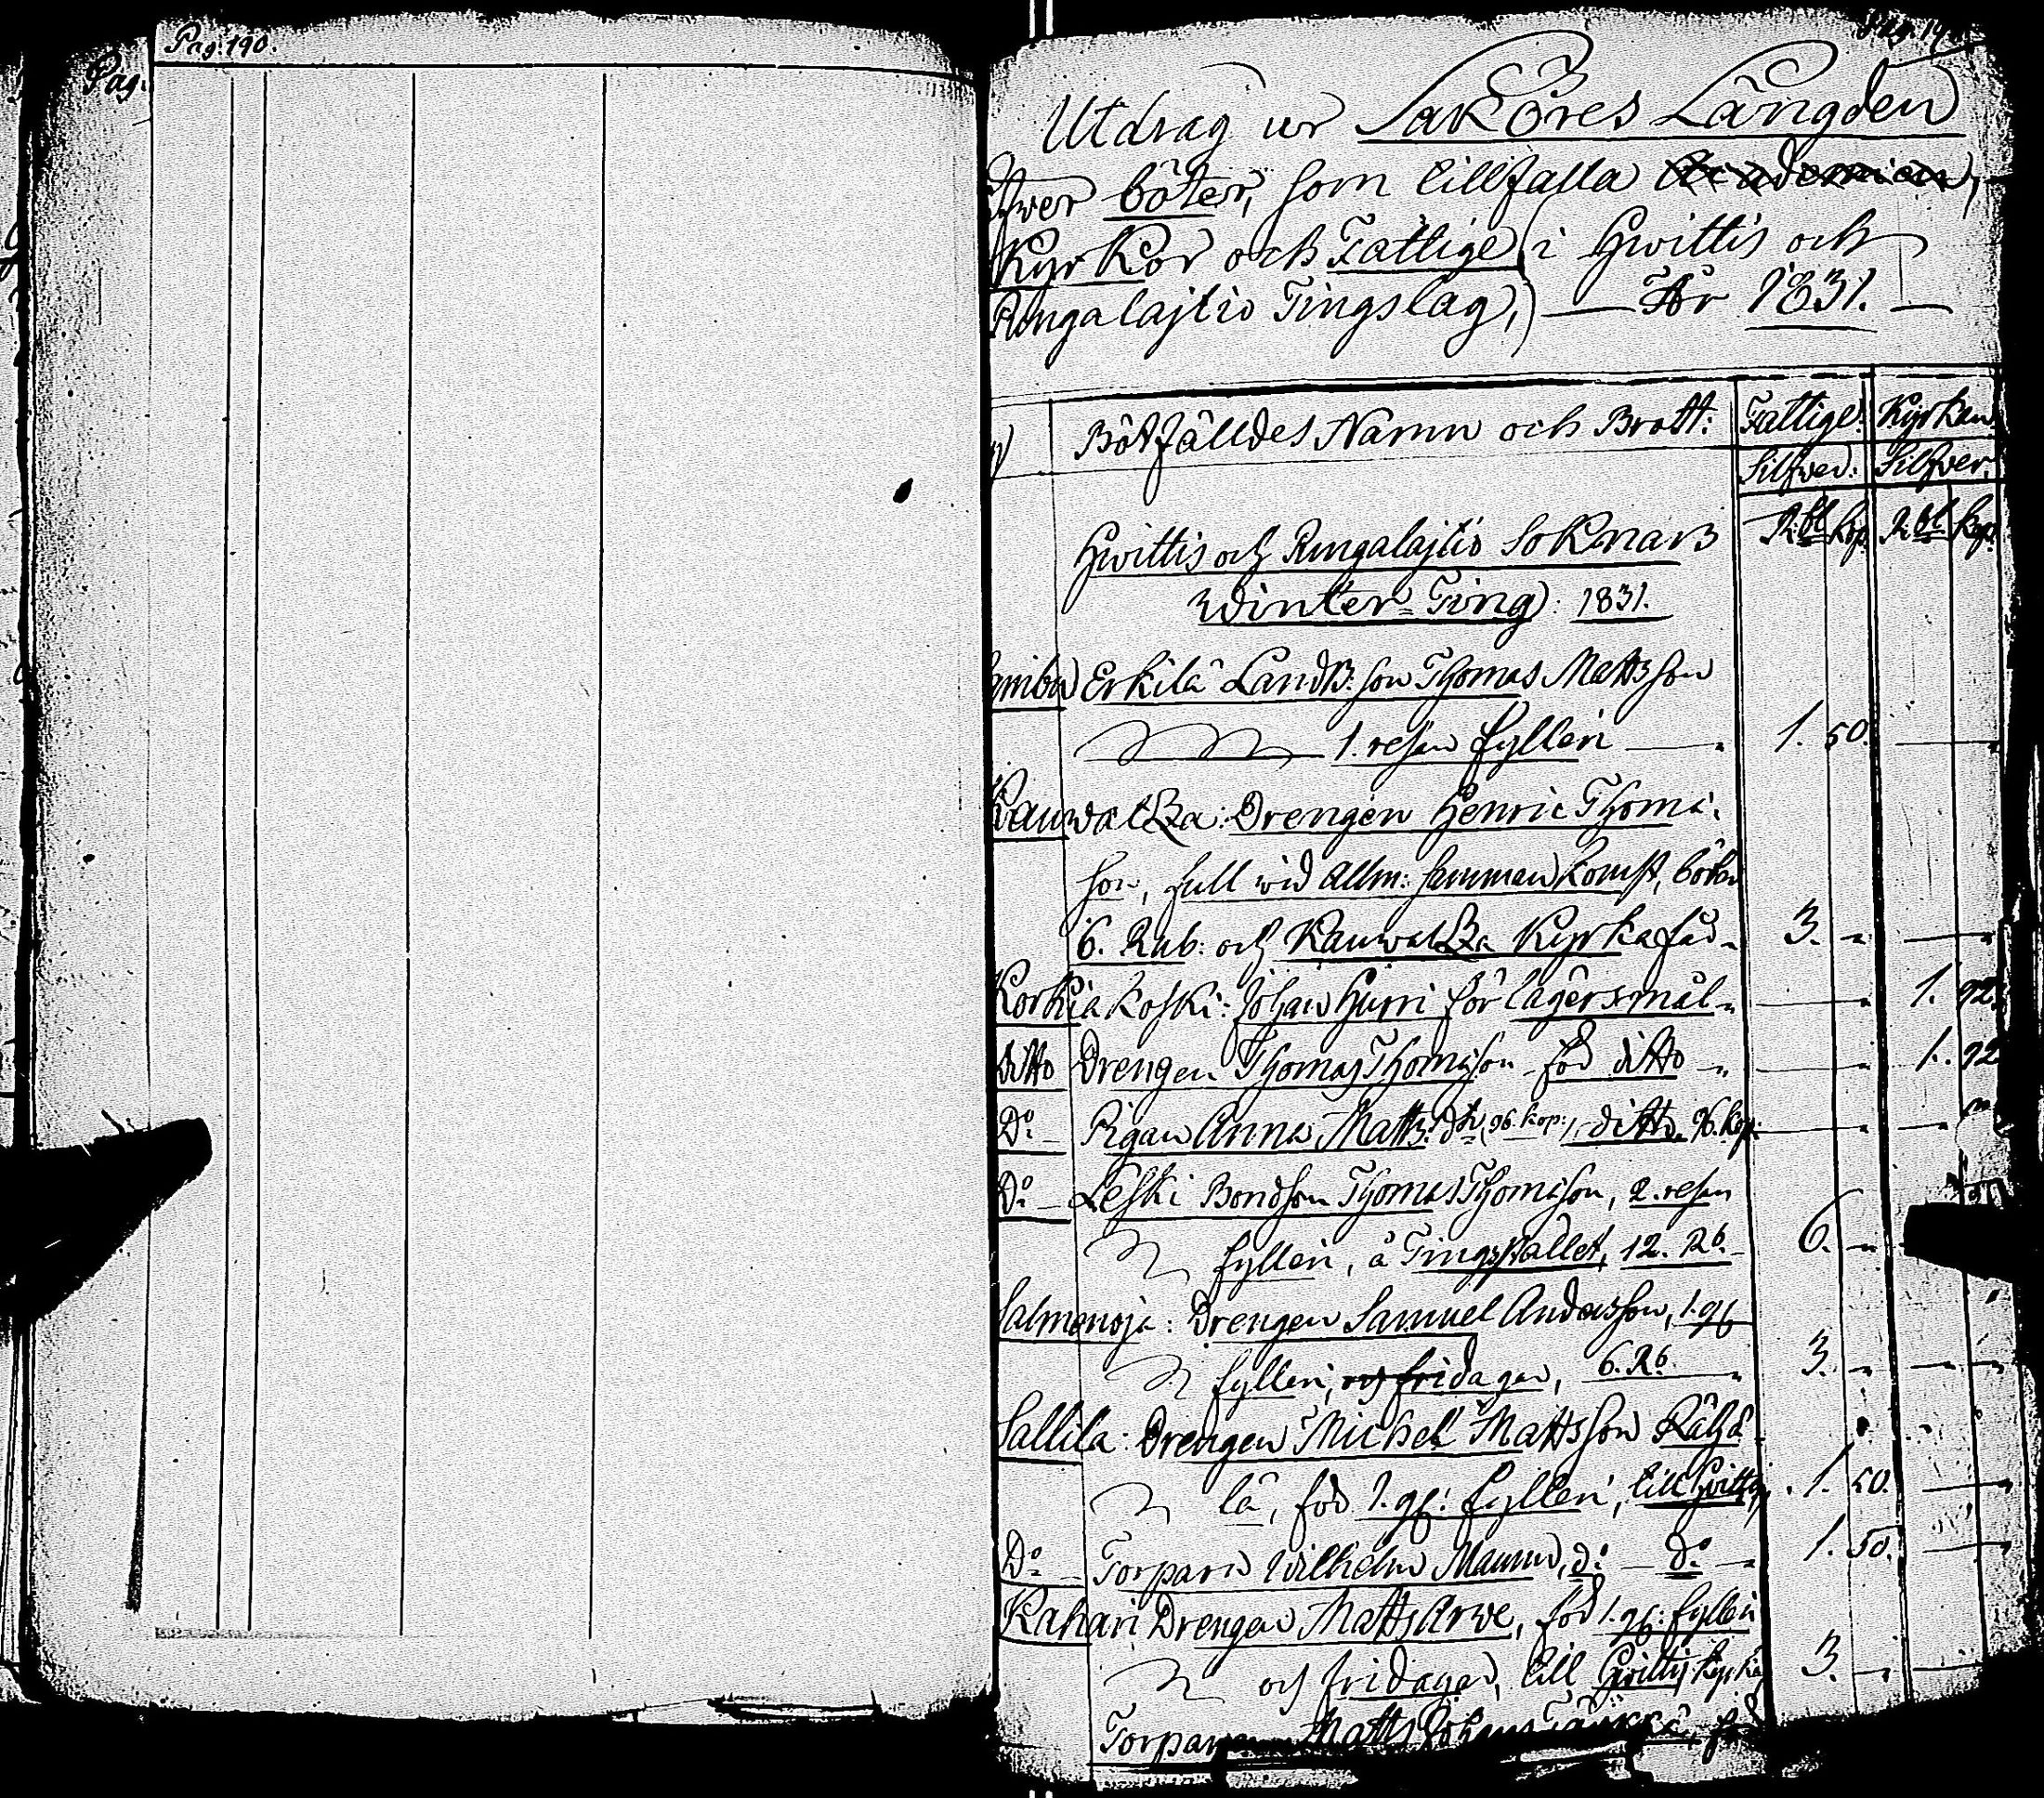 Pag. 190.
Pag.
Utdrag ur Saköres Längden
öfver böter, som tillfalla Academien,
Kyrkor och Fattige (i Hwittis och
Pungalajtio Tingslag,) — År 1831. —
Bötfälldes Namn och Brott: Fattige: Kyrkan
Silfver: Silfver:
Rbl kop. Rbl kop.
Hwittis och Pungalajtio Soknars
Winter-Ting: 1831.
Erkilä Landb: son Thomas Mattsson
1. resan fylleri — 1. 50. —
Kauvatza: Drengen Henric Thoma:
son, full wid allm: sammankomst, böter
6. Rub: och Kauvatza Kyrka får 3. — —
Korkiakoski: Johan Hurri för lägersmål — 1. 92.
Ditto Drengen Thomas Thomsson för ditto — 1. 92
Do Pigan Anna Matts:dr (96. kop:) ditto 96. kop: —
Do Leski Bondson Thomas Thomsson, 2. resan
fylleri, å Tingstället, 12. Rb. 6. —
Salmenoja: Drengen Samuel Andersson, 1. gg
fylleri, och fridagen, 6. Rb. 3. —
Sallila: Drengen Michel Mattsson Räihä-
lä, för 1. gg: fylleri, till Hvittis 1. 50. —
Do Torparen Wilhelm Maunu, do — do — 1. 50. —
Kahari Drengen Matts Arve, för 1. gg: fylleri
och fridagen, till Hvittis kyrka 3. —
Torparen Matts